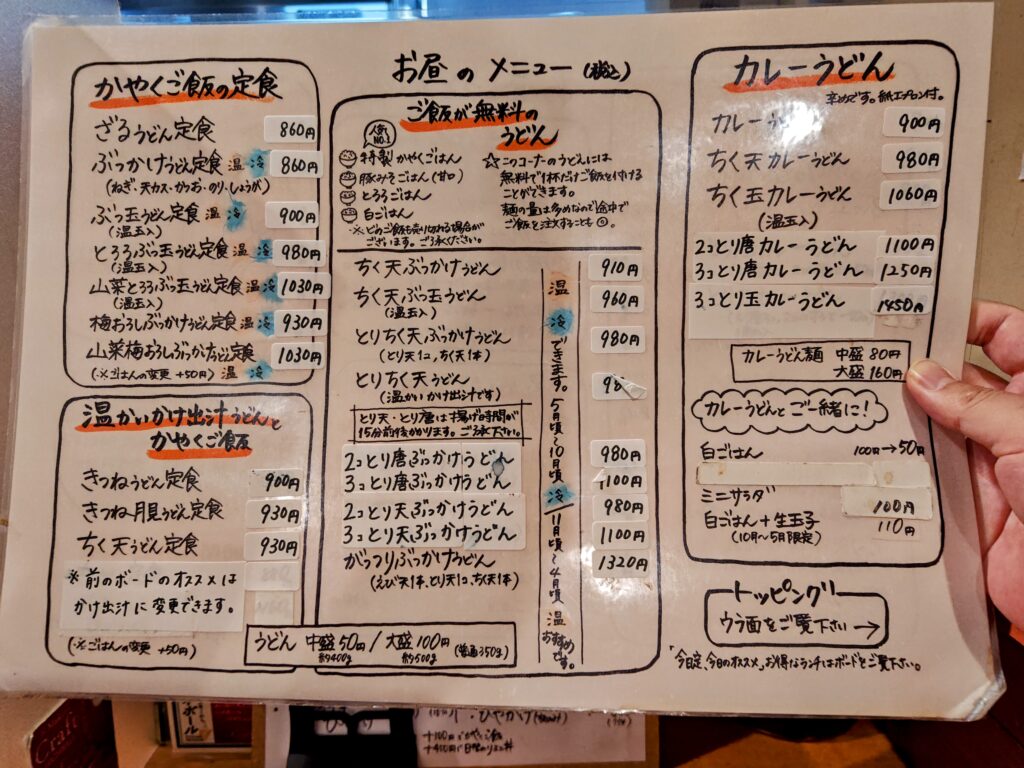 お昼のメニュー(税込)
かやくご飯の定食
ざるうどん定食 860円
ぶっかけうどん定食 温 冷 860円
(ねぎ・天カス・かつお・のり・しょうが)
ぶっ玉うどん定食 温 冷 900円
(温玉入)
とろろぶっ玉うどん定食 温 冷 980円
(温玉入)
山菜とろろぶっ玉うどん定食 温 冷 1030円
(温玉入)
梅おろしぶっかけうどん定食 温 冷 930円
山菜梅おろしぶっかけうどん定食 1030円
(※ごはんの変更 +50円) 温 冷
温かいかけ出汁うどんと
かやくご飯
きつねうどん定食 900円
きつね月見うどん定食 930円
ちく天うどん定食 930円
※前のボードのオススメは
かけ出汁に変更できます。
(※ごはんの変更 +50円)
ご飯が無料の
うどん
人気
NO.1
特製かやくごはん
豚みそごはん(甘口)
とろろごはん
白ごはん
※どのご飯も売り切れる場合が
ございます。ご了承ください。
☆このコーナーのうどんには
無料で1杯だけご飯を付ける
ことができます。
麺の量は多めなので途中で
ご飯を注文することも
ちく天ぶっかけうどん 910円
ちく天ぶっ玉うどん 960円
とりちく天ぶっかけうどん 980円
(とり天1コ、ちく天1本)
とりちく天うどん 98
(温かいかけ出汁です)
とり天・とり唐は揚げ時間が
15分前後かかります。ご了承下さい。
2コとり唐ぶっかけうどん 980円
3コとり唐ぶっかけうどん 1100円
2コとり天ぶっかけうどん 980円
3コとり天ぶっかけうどん 1100円
がっつりぶっかけうどん 1320円
(えび天1本、とり天1コ、ちく天1本)
温 冷 できます。5月頃〜10月頃 冷 / 11月頃〜4月頃 温 おすすめです。
うどん 中盛50円 / 大盛100円 (普通350g)
約400g 約500g
カレーうどん
辛めです。紙エプロン付。
カレーうどん 900円
ちく天カレーうどん 980円
ちく玉カレーうどん 1060円
(温玉入)
2コとり唐カレーうどん 1100円
3コとり唐カレーうどん 1250円
3コとり玉カレーうどん 1450円
カレーうどん麺 中盛80円
大盛160円
カレーうどんとご一緒に!
白ごはん 100円→50円
ミニサラダ 100円
白ごはん+生玉子 110円
(10月〜5月限定)
トッピング
ウラ面をご覧下さい→
「今日定、今日のオススメ」お得なランチはボードをご覧下さい。
Craft
ホール
ひやかけ
+100円でかやくご飯